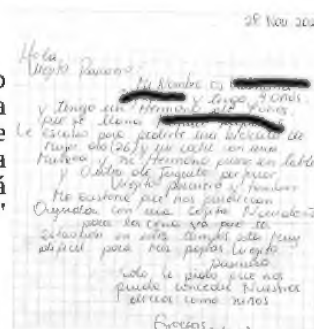 28 Nov. 202
Hola
Viejito Pascuero
Mi Nombre es
y tengo 9 años.
y tengo un Hermano de 4 años.
que se llama
Le escribo para pedirle una bicicleta de
mujer aro (26) y un coche con una
Muñeca y mi Hermano quiere un tablet
y Autito de Juguete por favor
Viejito pascuero y tambien
Me gustaria que nos pudieran
con una cajita Navideña
para la cena ya que la
situación en este tiempo esta muy
dificil para mis papas Viejito
pascuero
solo le pido que nos
pueda conceder Nuestros
deseos como niños
Gracias
o
a
e
a
á
"